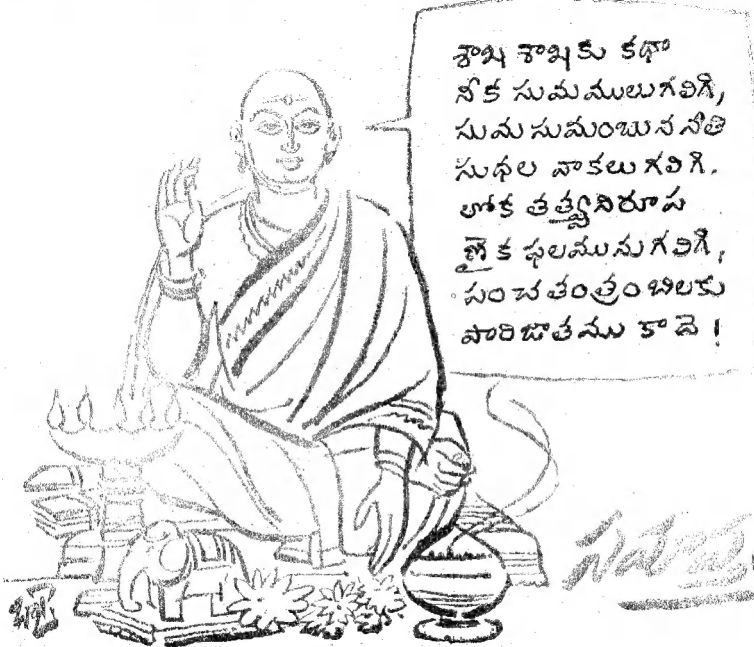 శాఖ శాఖకు కథా
నీక సుమములుగలిగి,
సుమ సుమంబున నీతి
సుధల వాకలు గలిగి.
లోక తత్త్వనిరూప
ణైక ఫలమును గలిగి,
పంచతంత్రం బిలకు
పారిజాతము కాదె!